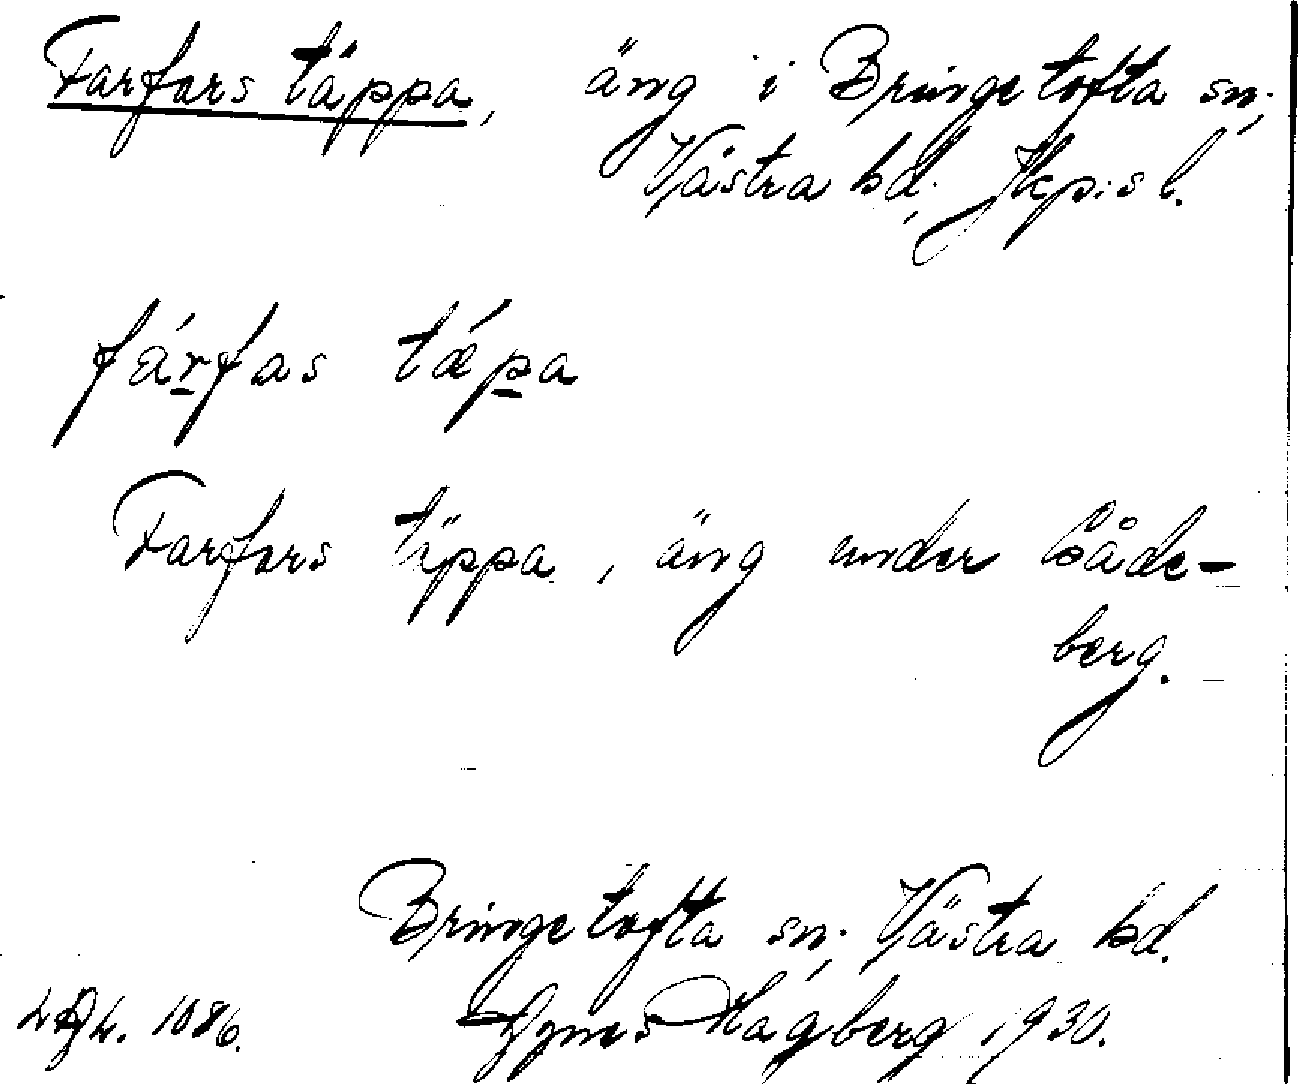 Farfars täppa, äng i Bringetofta sn;
Västra hd; Jkp:s l.
fárfas tǽpa
Farfars täppa, äng under Såde-
berg.
Bringetofta sn; Västra hd.
1086. Agnes Hagberg 1930.